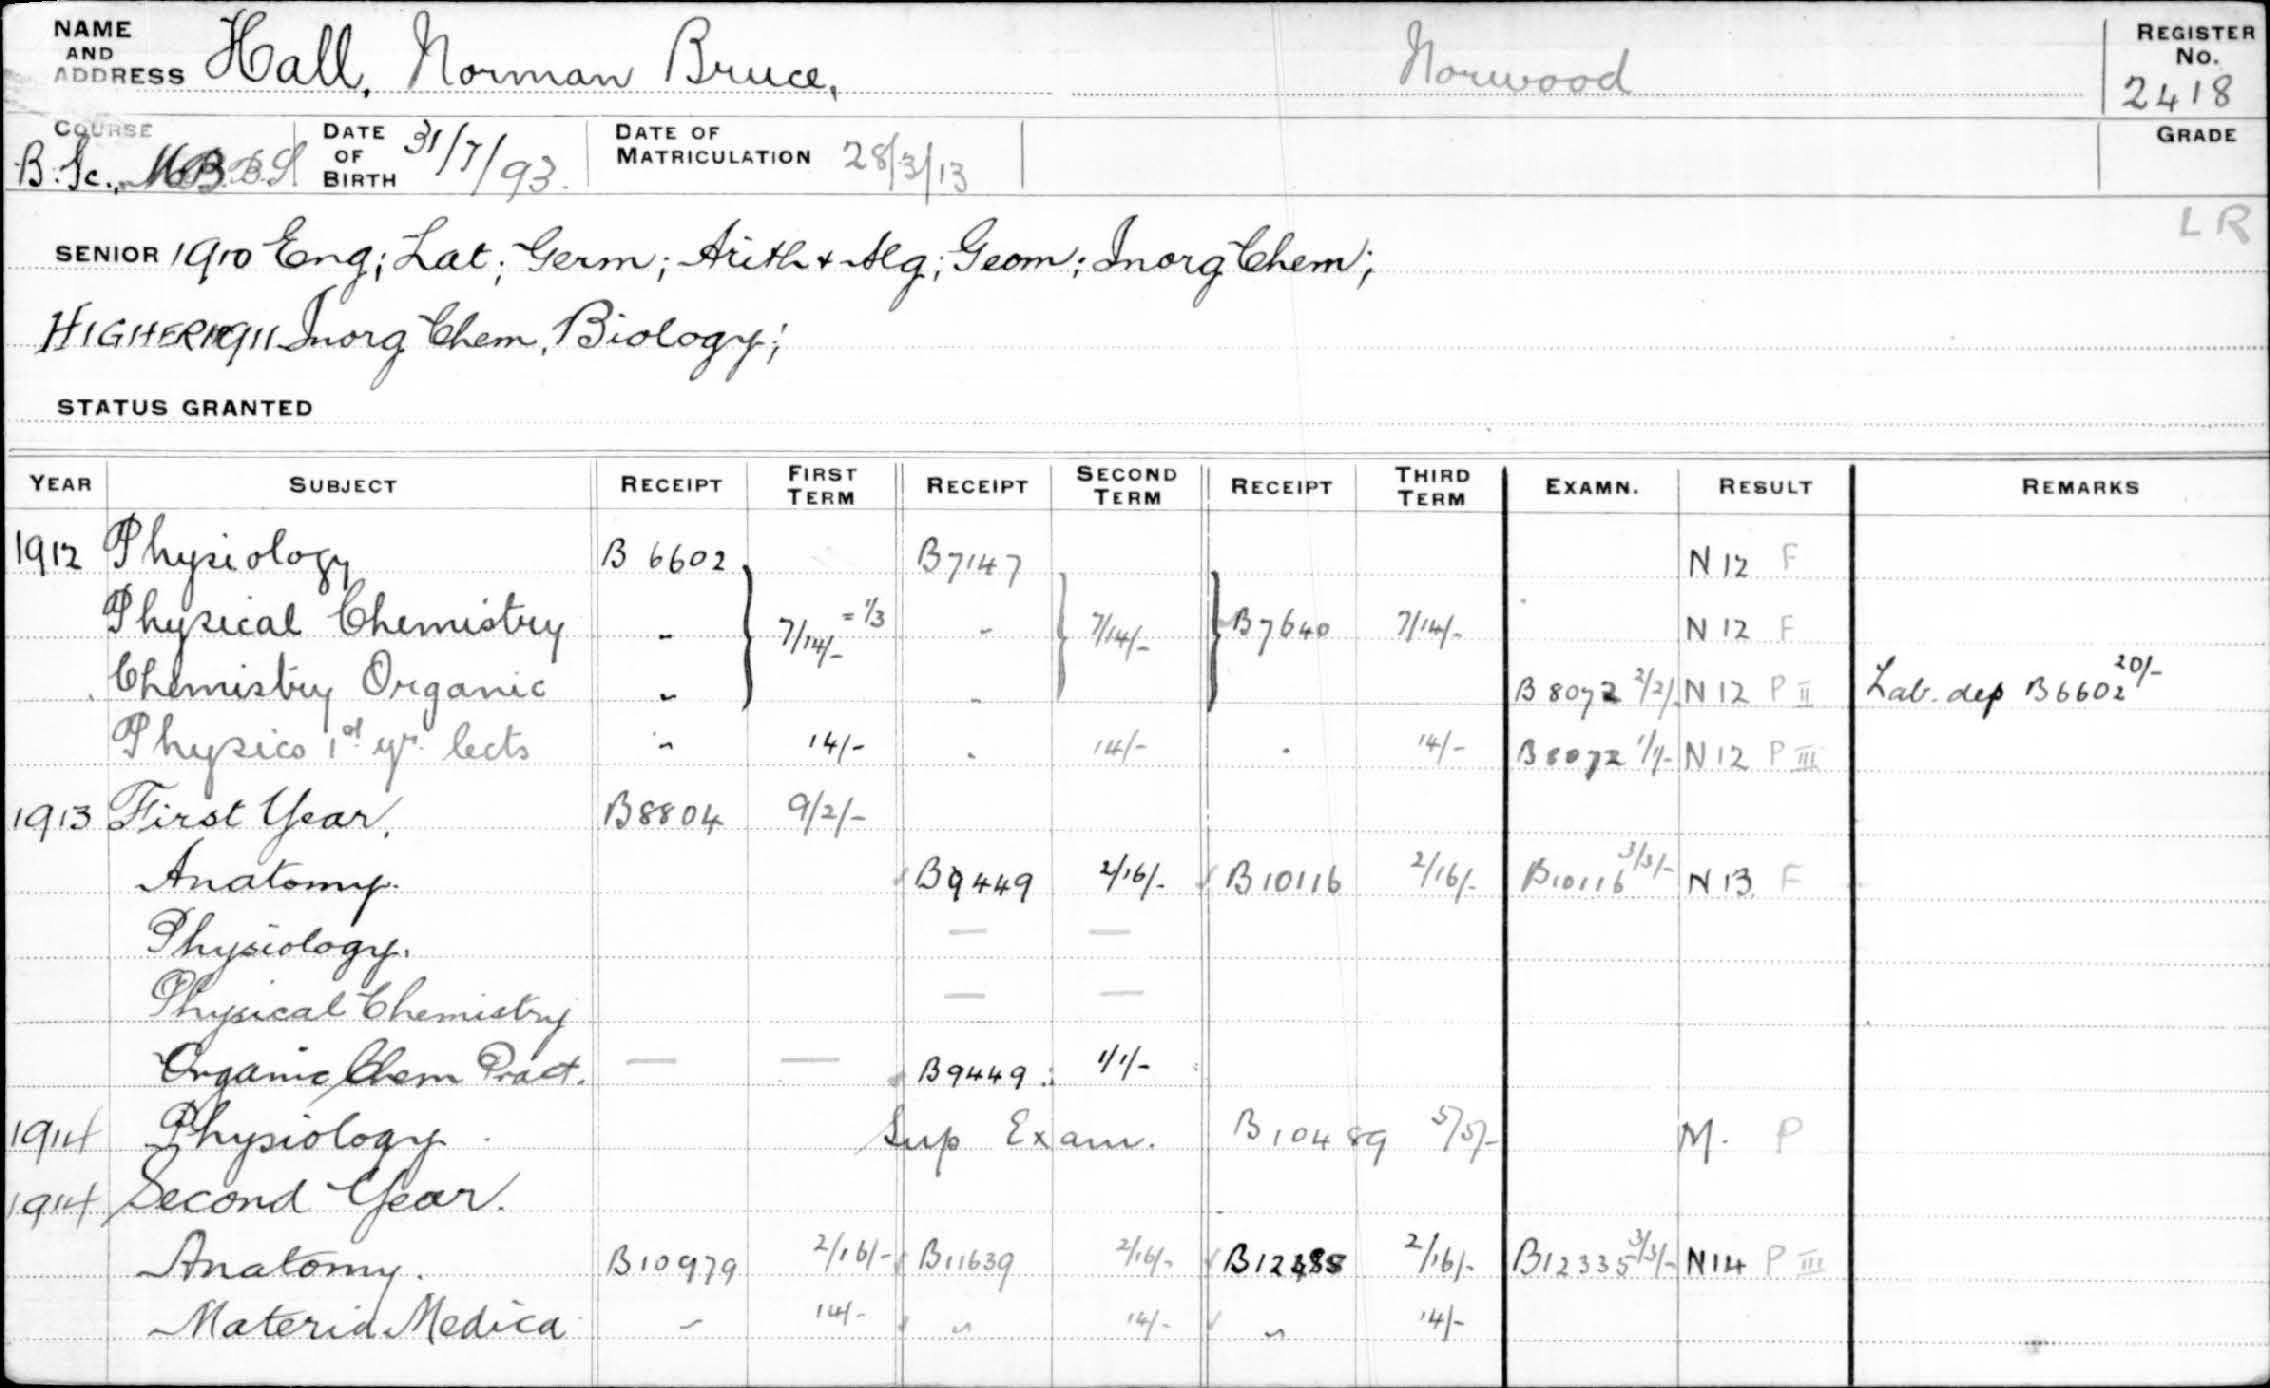 NAME AND ADDRESS Hall, Norman Bruce, Norwood REGISTER No. 2418
COURSE B.Sc., M.B. B.S DATE OF BIRTH 31/7/93. DATE OF MATRICULATION 28/3/13 GRADE
LR
SENIOR 1910 Eng; Lat; Germ; Arith & Alg; Geom; Inorg Chem;
HIGHER 1911 Inorg Chem, Biology;
STATUS GRANTED
YEAR SUBJECT RECEIPT FIRST TERM RECEIPT SECOND TERM RECEIPT THIRD TERM EXAMN. RESULT REMARKS
1912 Physiology B 6602 B7147 N 12 F
Physical Chemistry - 7/14/- = 1/3 - 7/14/- B7640 7/14/- N 12 F
Chemistry Organic - - B 8072 2/2/ N 12 P II Lab. dep B6602 20/-
Physics 1st yr. lects - 14/- - 14/- - 14/- B 8072 1/1/- N 12 P III
1913 First Year. B8804 9/2/-
Anatomy. B9449 2/16/- B10116 2/16/- B10116 3/3/- N 13 F
Physiology. — —
Physical Chemistry — —
Organic Chem Pract. — — B9449 1/1/-
1914 Physiology Sup Exam. B10489 5/5/- M. P
1914 Second Year.
Anatomy. B10979 2/16/- B11639 2/16/- 2/16/- B12335 3/3/- N14 P III
Materia Medica - 14/- - 14/- - 14/-